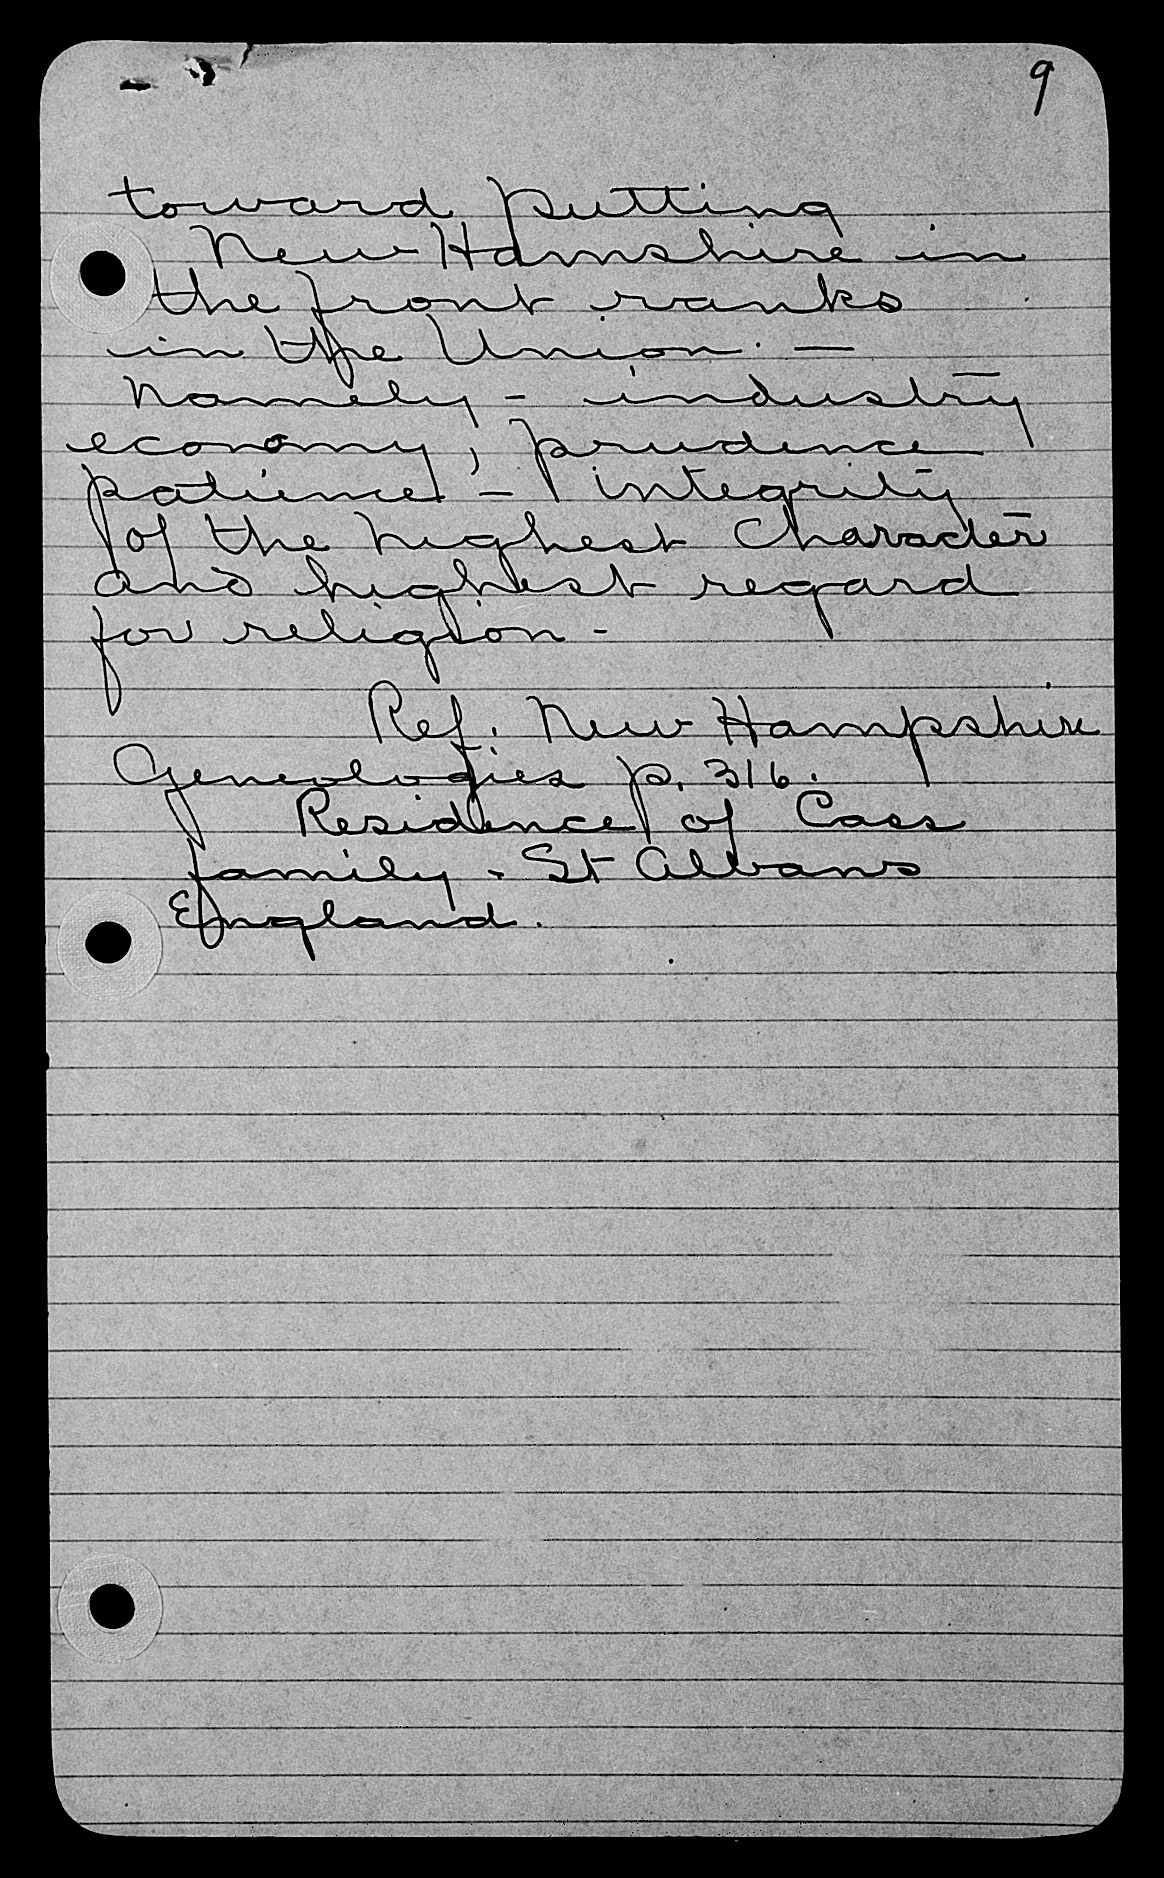 9
toward putting
New Hamshire in
the front ranks
in the Union. —
Namely - industry
economy, prudence
patience - integrity
of the highest Character
and highest regard
for religion -
Ref. New Hampshire
Geneologies p. 316.
Residence of Cass
family - St Albans
England.